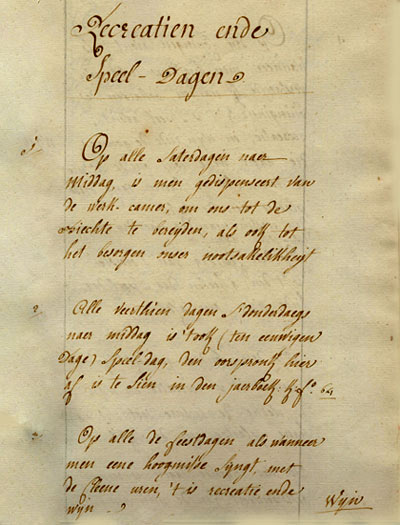 Recreatien ende
Speel-Dagen
1
Op alle Saterdagen naer
middag, is men gedispenseert van
de werk-camer, om ons tot de
biechte te bereyden, als ook tot
het besorgen onser nootsakelikheijt
2
Alle veerthien dagen S'donderdaegs
naer middag is 't ook (ten eeuwigen
Dage) Speel-dag, den oorspronk hier
af is te Sien in den jaerboek
3
Op alle de feestdagen als wanneer
men eene hoogmisse Syngt, met
de kleene uren, 't is recreatie ende
wijn.
Wijn